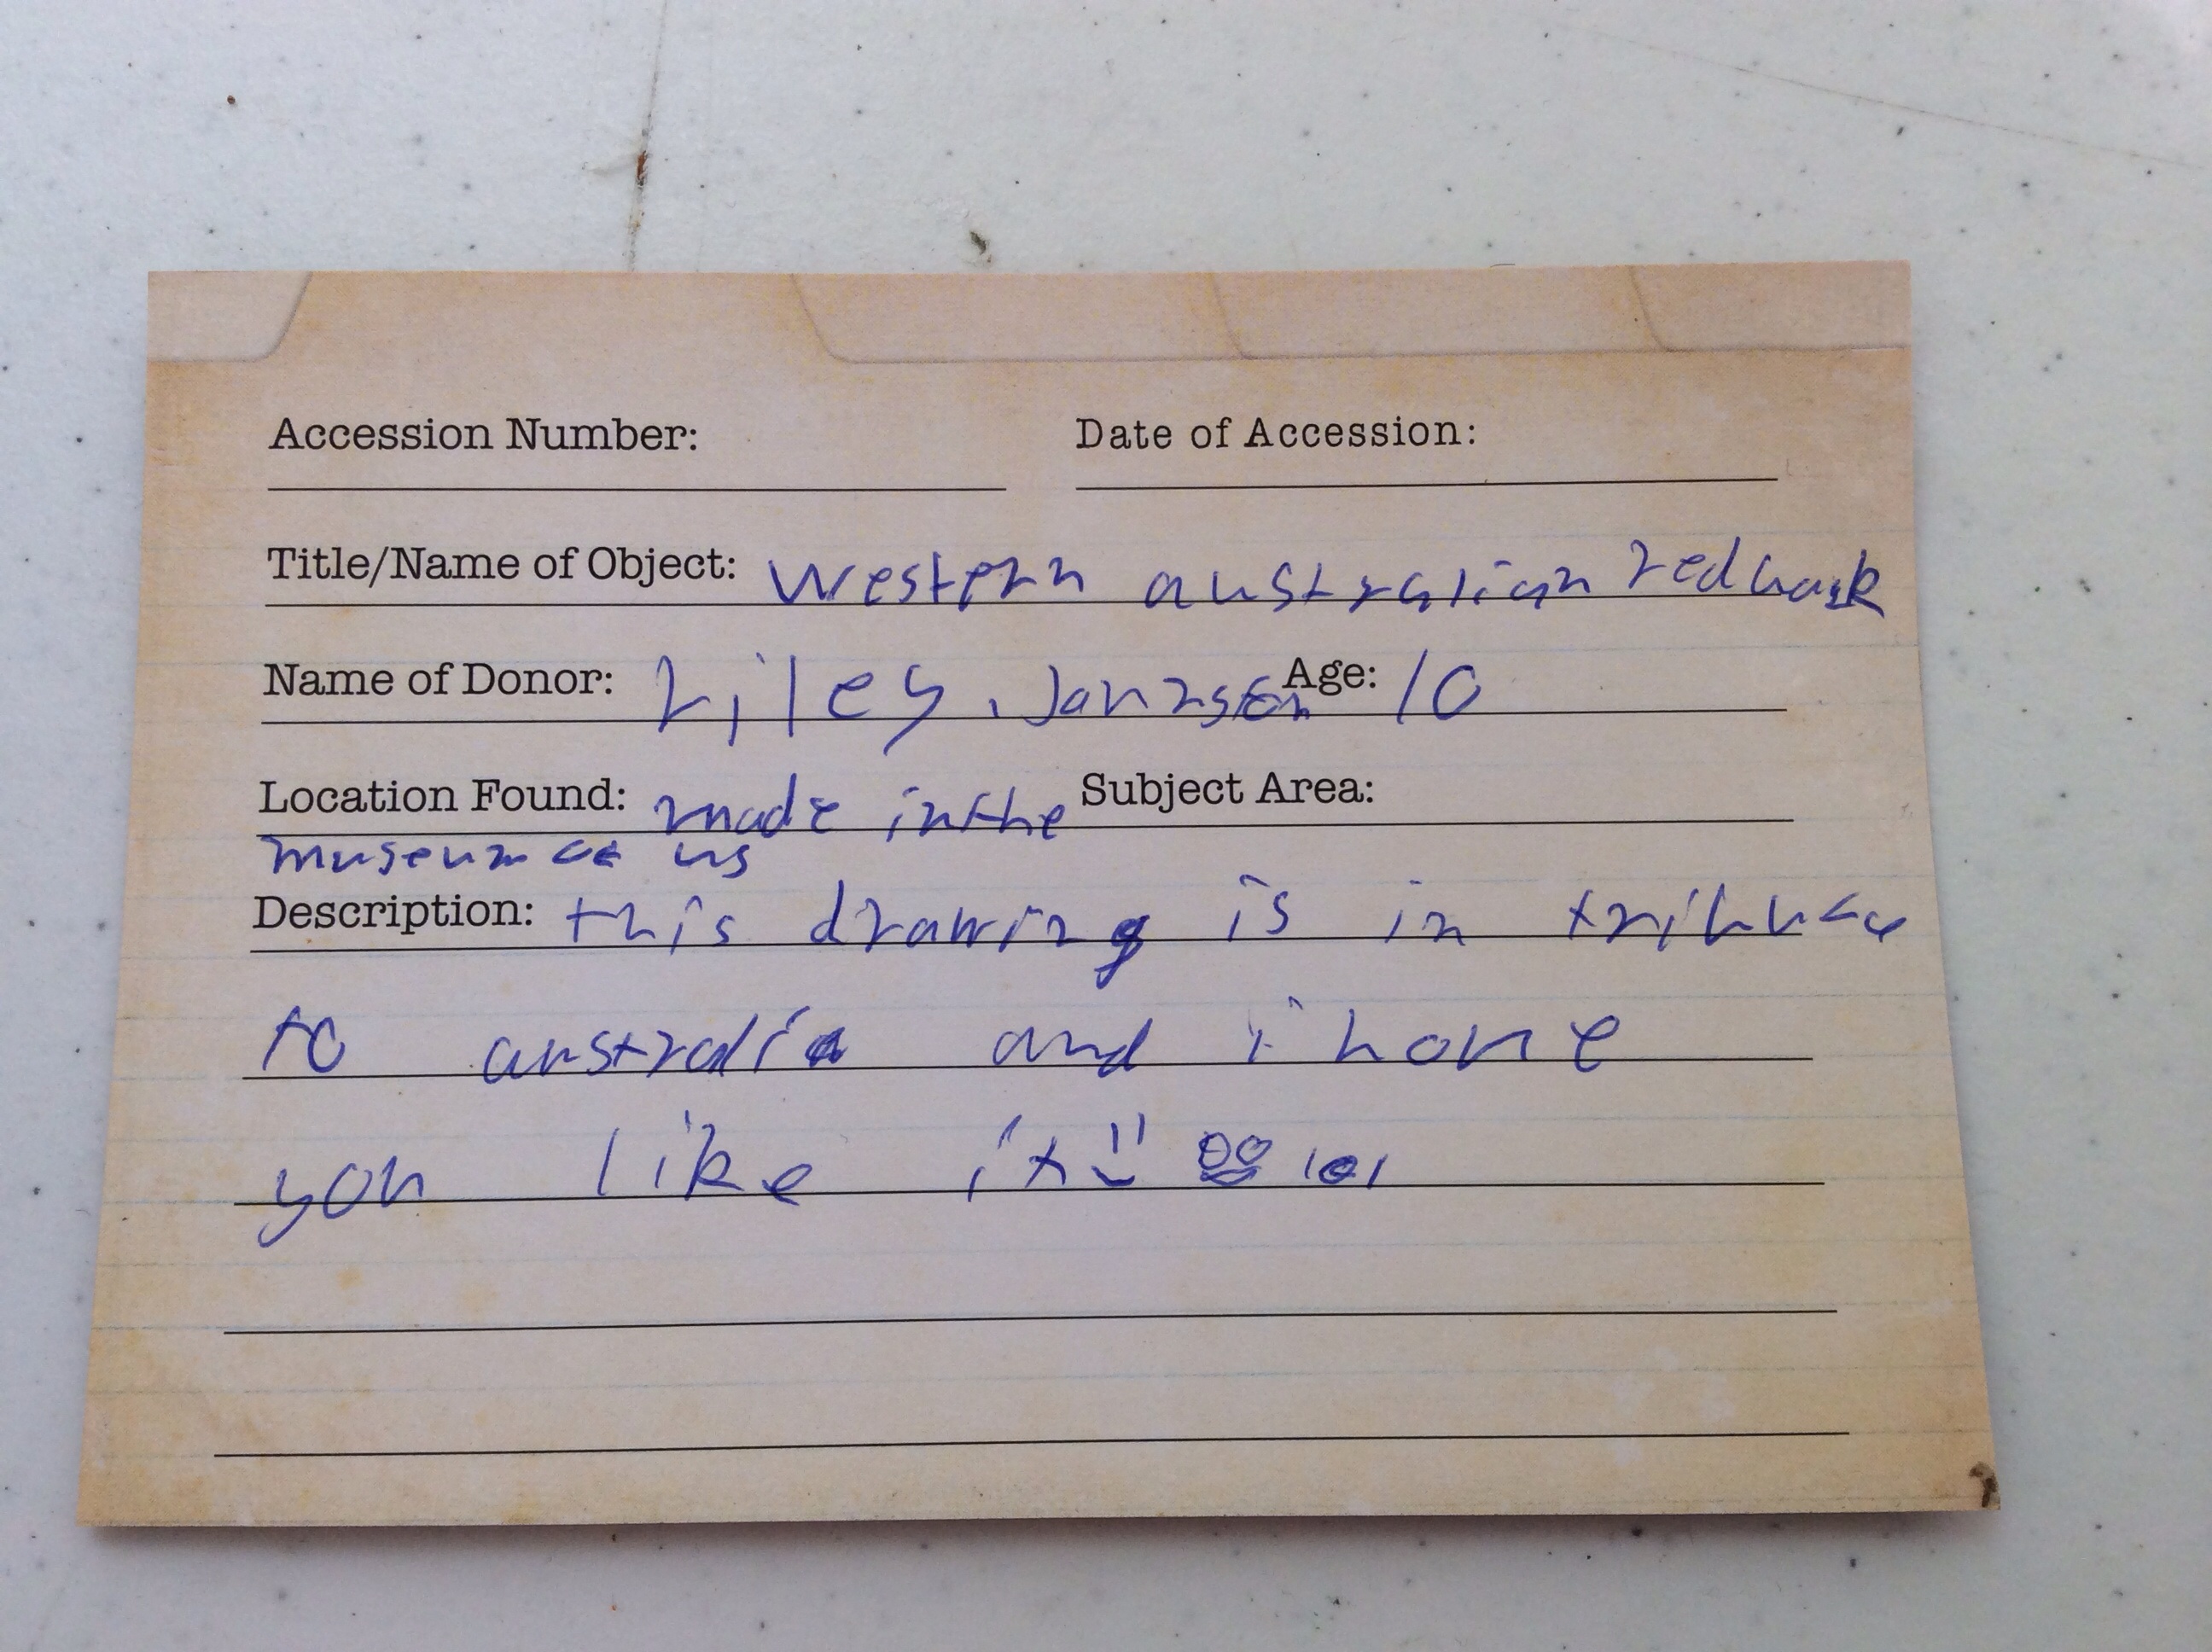 Accession Number: Date of Accession:
Title/Name of Object: western australian redback
Name of Donor: riley. Janzsen Age: 10
Location Found: made in the Subject Area:
museum us
Description: this drawing is in
to australia and i hope
you like it